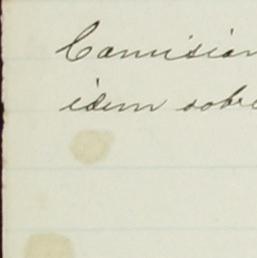 Comision
idem sobre